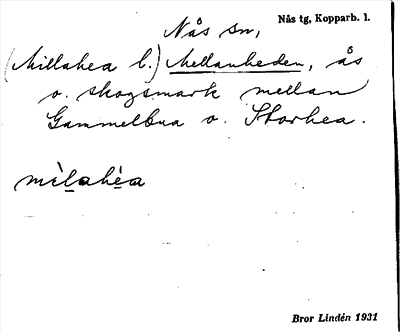 Nås sn, Nås tg, Kopparb. l.
(Millahea l.) Mellanheden, ås
o. skogsmark mellan
Gammelbua o. Storhea.
mèlahèa
Bror Lindén 1931